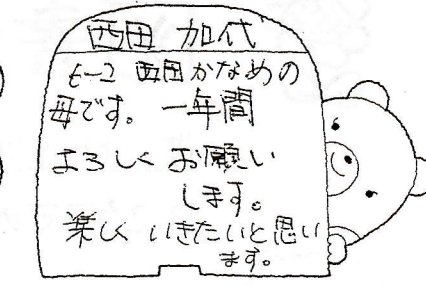 西田 加代
6-2 西田かなめの
母です。一年間
よろしく お願い
します。
楽しく いきたいと思い
ます。